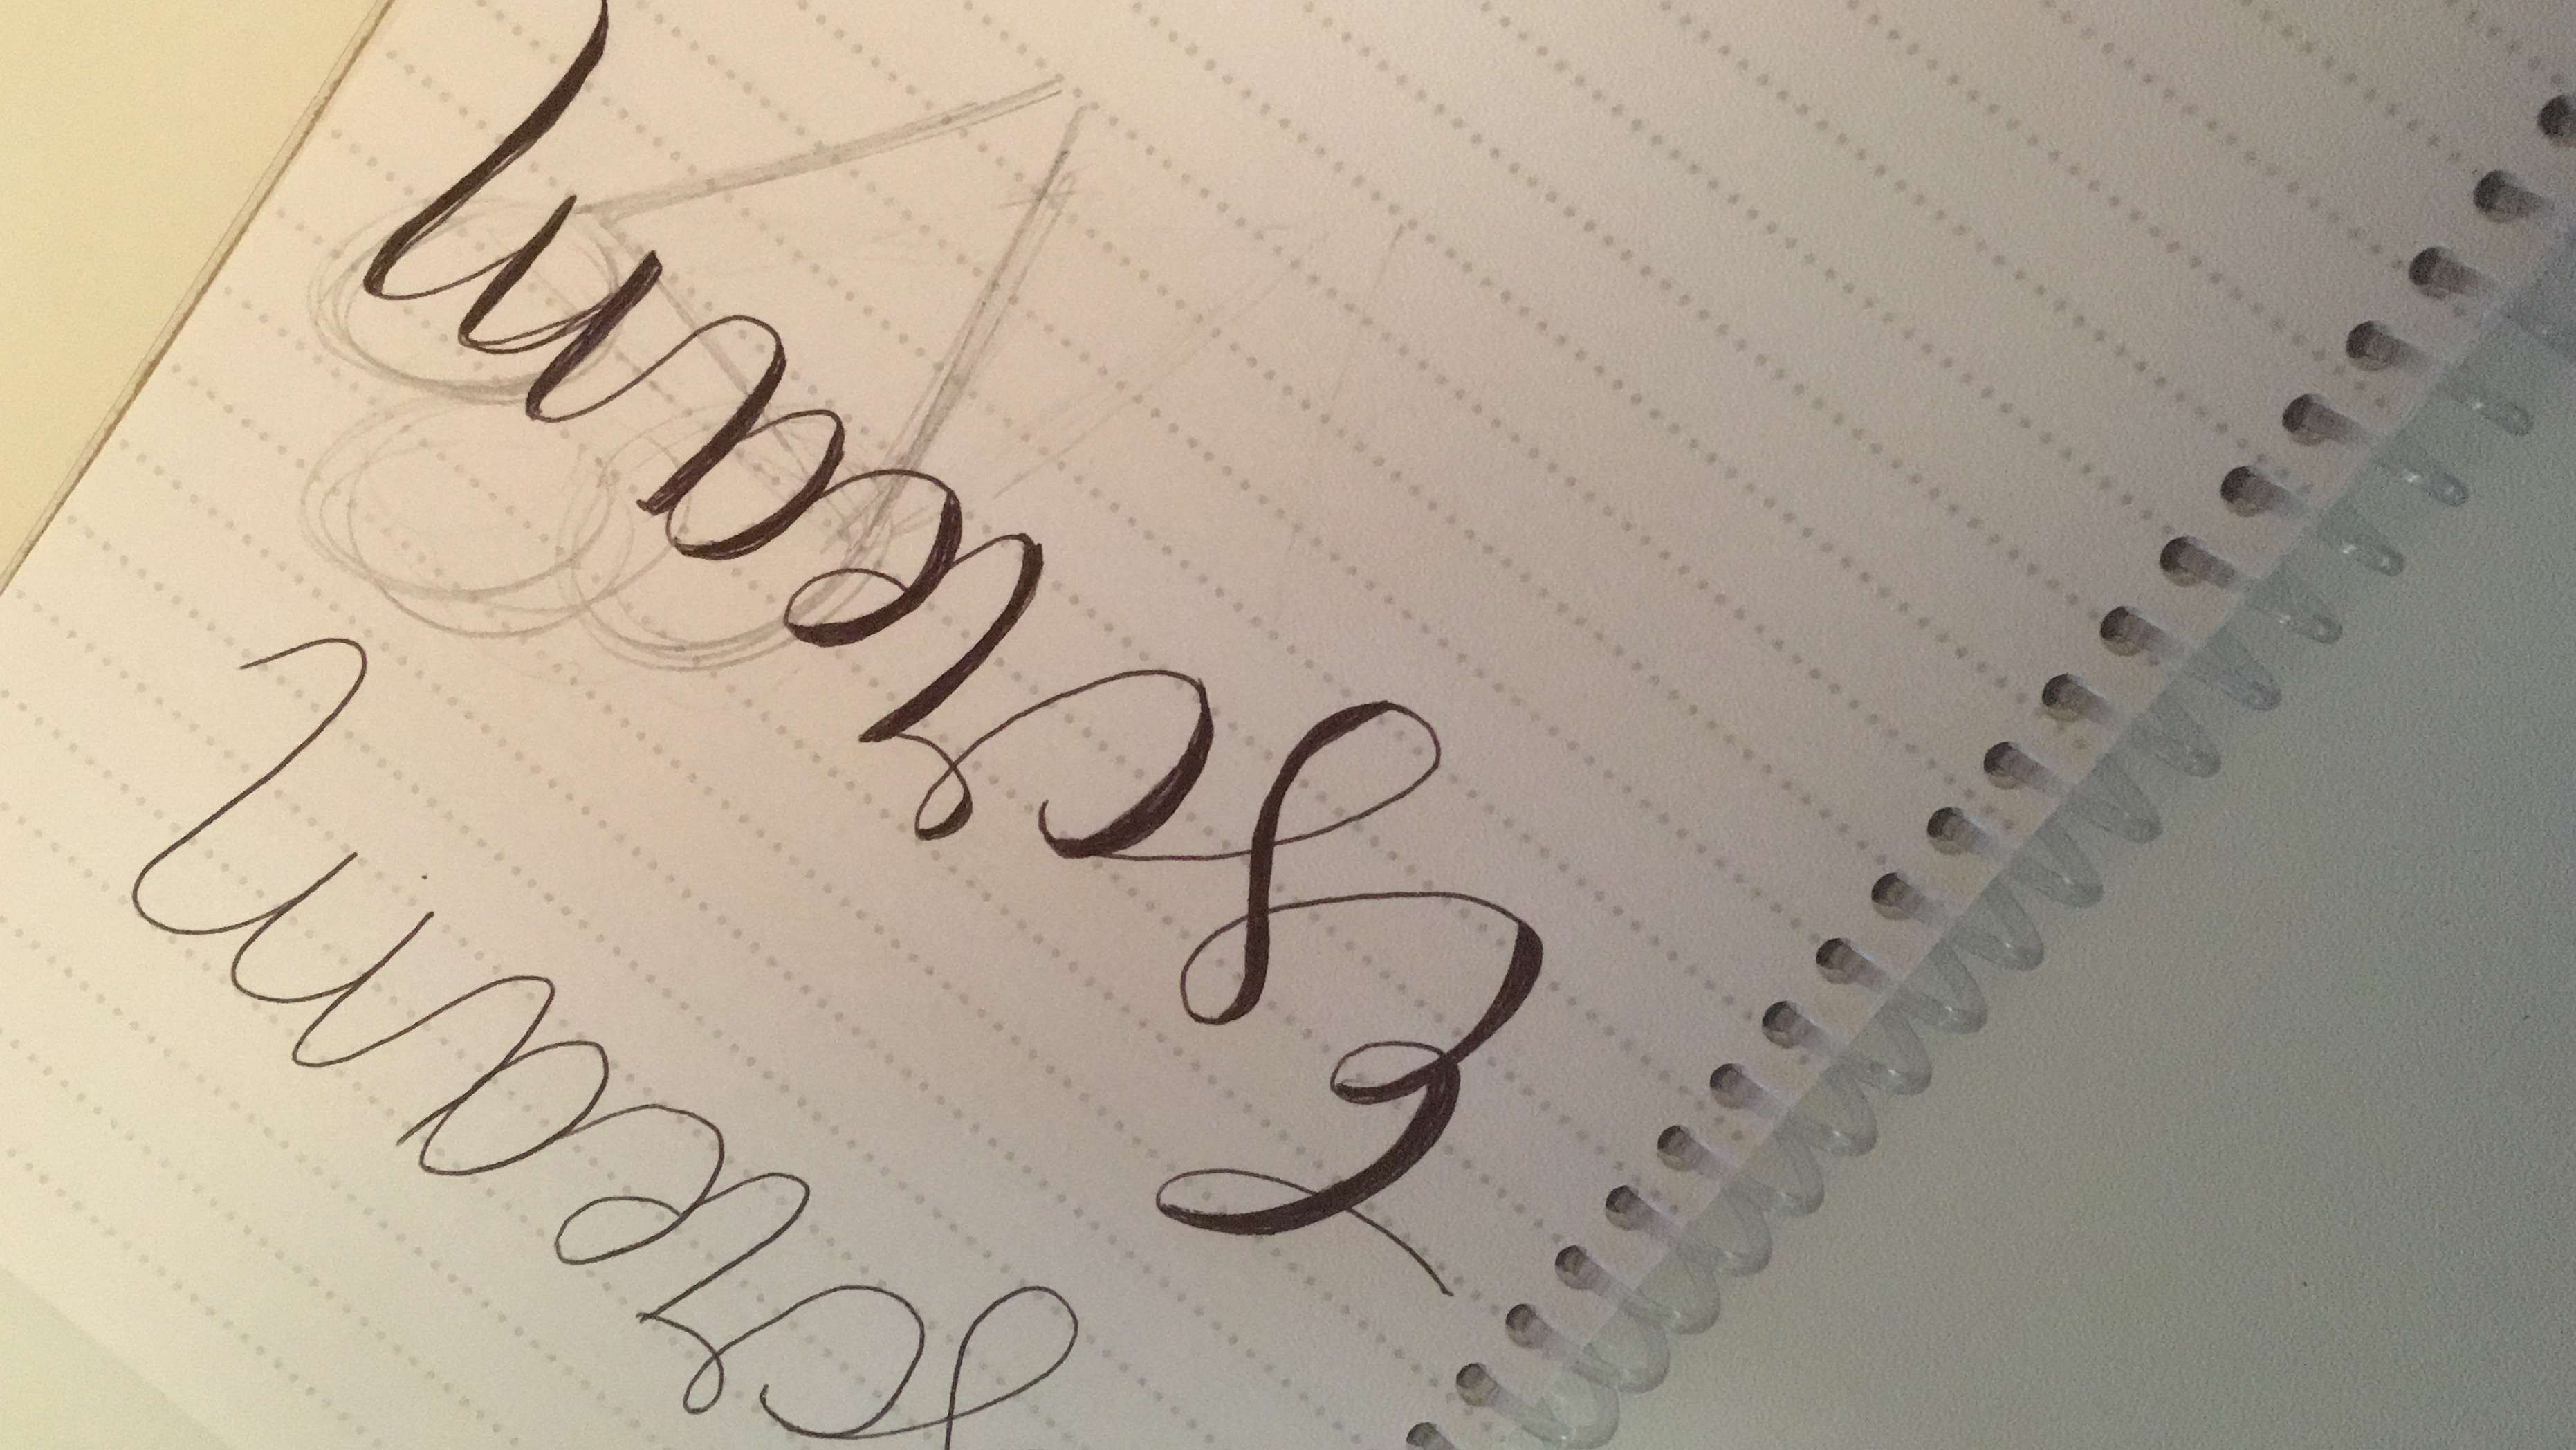 scream
Escream